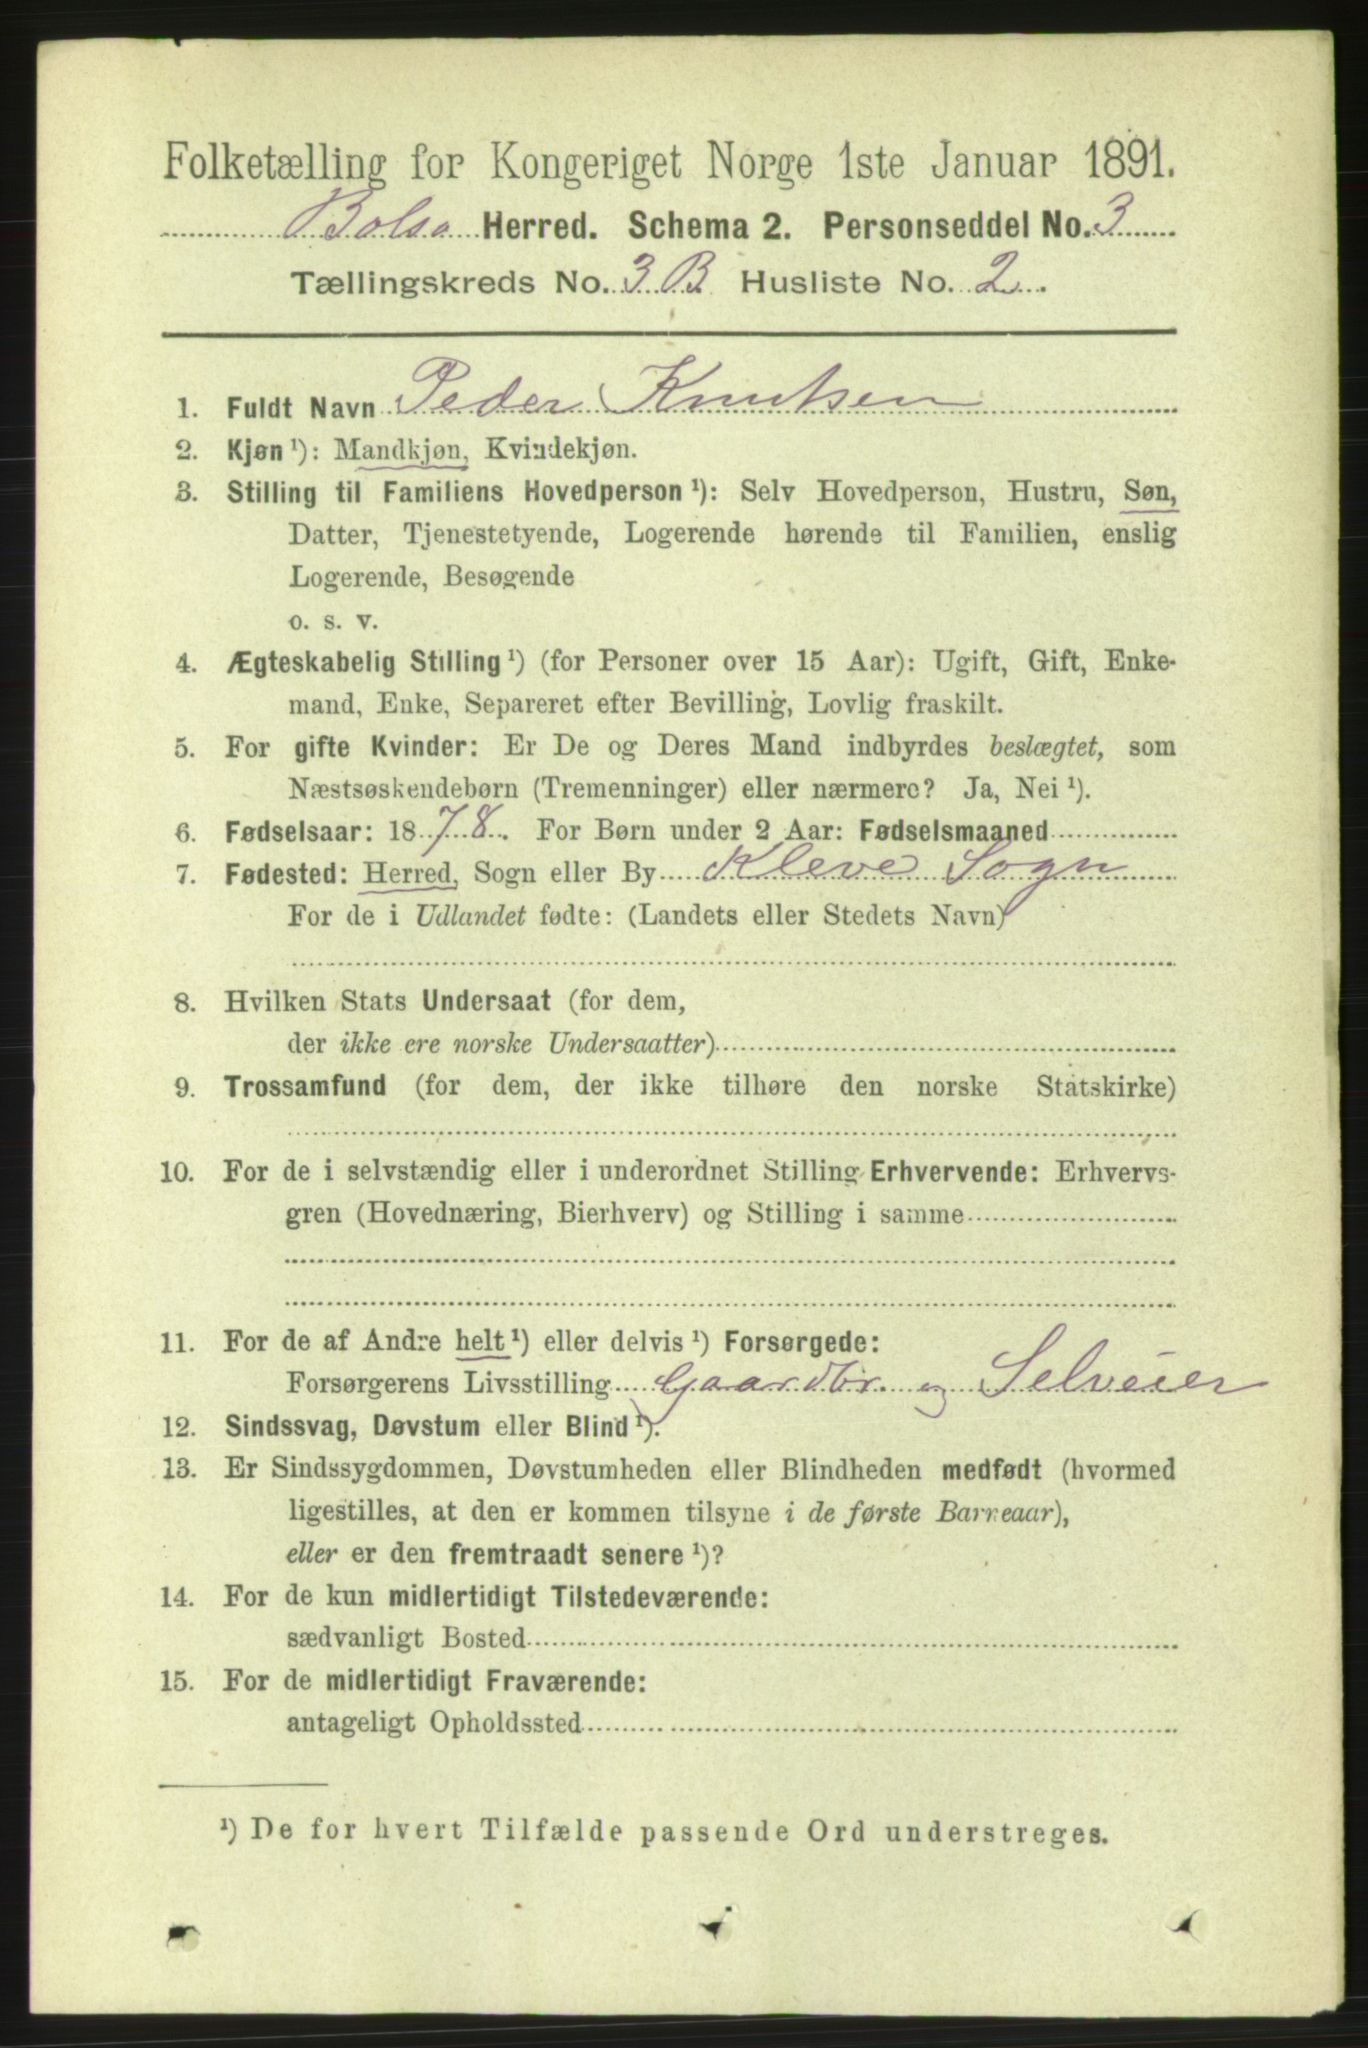 Folketælling for Kongeriget Norge 1ste Januar 1891.
Bolsø Herred. Schema 2. Personseddel No. 3
Tællingskreds No. 3 B Husliste No. 2
1. Fuldt Navn Peder Knutsen
2. Kjøn ¹): Mandkjøn, Kvindekjøn.
3. Stilling til Familiens Hovedperson ¹): Selv Hovedperson, Hustru, Søn,
Datter, Tjenestetyende, Logerende hørende til Familien, enslig
Logerende, Besøgende
o. s. v.
4. Ægteskabelig Stilling ¹) (for Personer over 15 Aar): Ugift, Gift, Enke-
mand, Enke, Separeret efter Bevilling, Lovlig fraskilt.
5. For gifte Kvinder: Er De og Deres Mand indbyrdes beslægtet, som
Næstsøskendebørn (Tremenninger) eller nærmere? Ja, Nei ¹).
6. Fødselsaar: 1878. For Børn under 2 Aar: Fødselsmaaned
7. Fødested: Herred, Sogn eller By Kleve Sogn
For de i Udlandet fødte: (Landets eller Stedets Navn)
8. Hvilken Stats Undersaat (for dem,
der ikke ere norske Undersaatter)
9. Trossamfund (for dem, der ikke tilhøre den norske Statskirke)
10. For de i selvstændig eller i underordnet Stilling Erhvervende: Erhvervs-
gren (Hovednæring, Bierhverv) og Stilling i samme
11. For de af Andre helt ¹) eller delvis ¹) Forsørgede:
Forsørgerens Livsstilling Gaardbr. og Selveier
12. Sindssvag, Døvstum eller Blind ¹).
13. Er Sindssygdommen, Døvstumheden eller Blindheden medfødt (hvormed
ligestilles, at den er kommen tilsyne i de første Barneaar),
eller er den fremtraadt senere ¹)?
14. For de kun midlertidigt Tilstedeværende:
sædvanligt Bosted
15. For de midlertidigt Fraværende:
antageligt Opholdssted
¹) De for hvert Tilfælde passende Ord understreges.